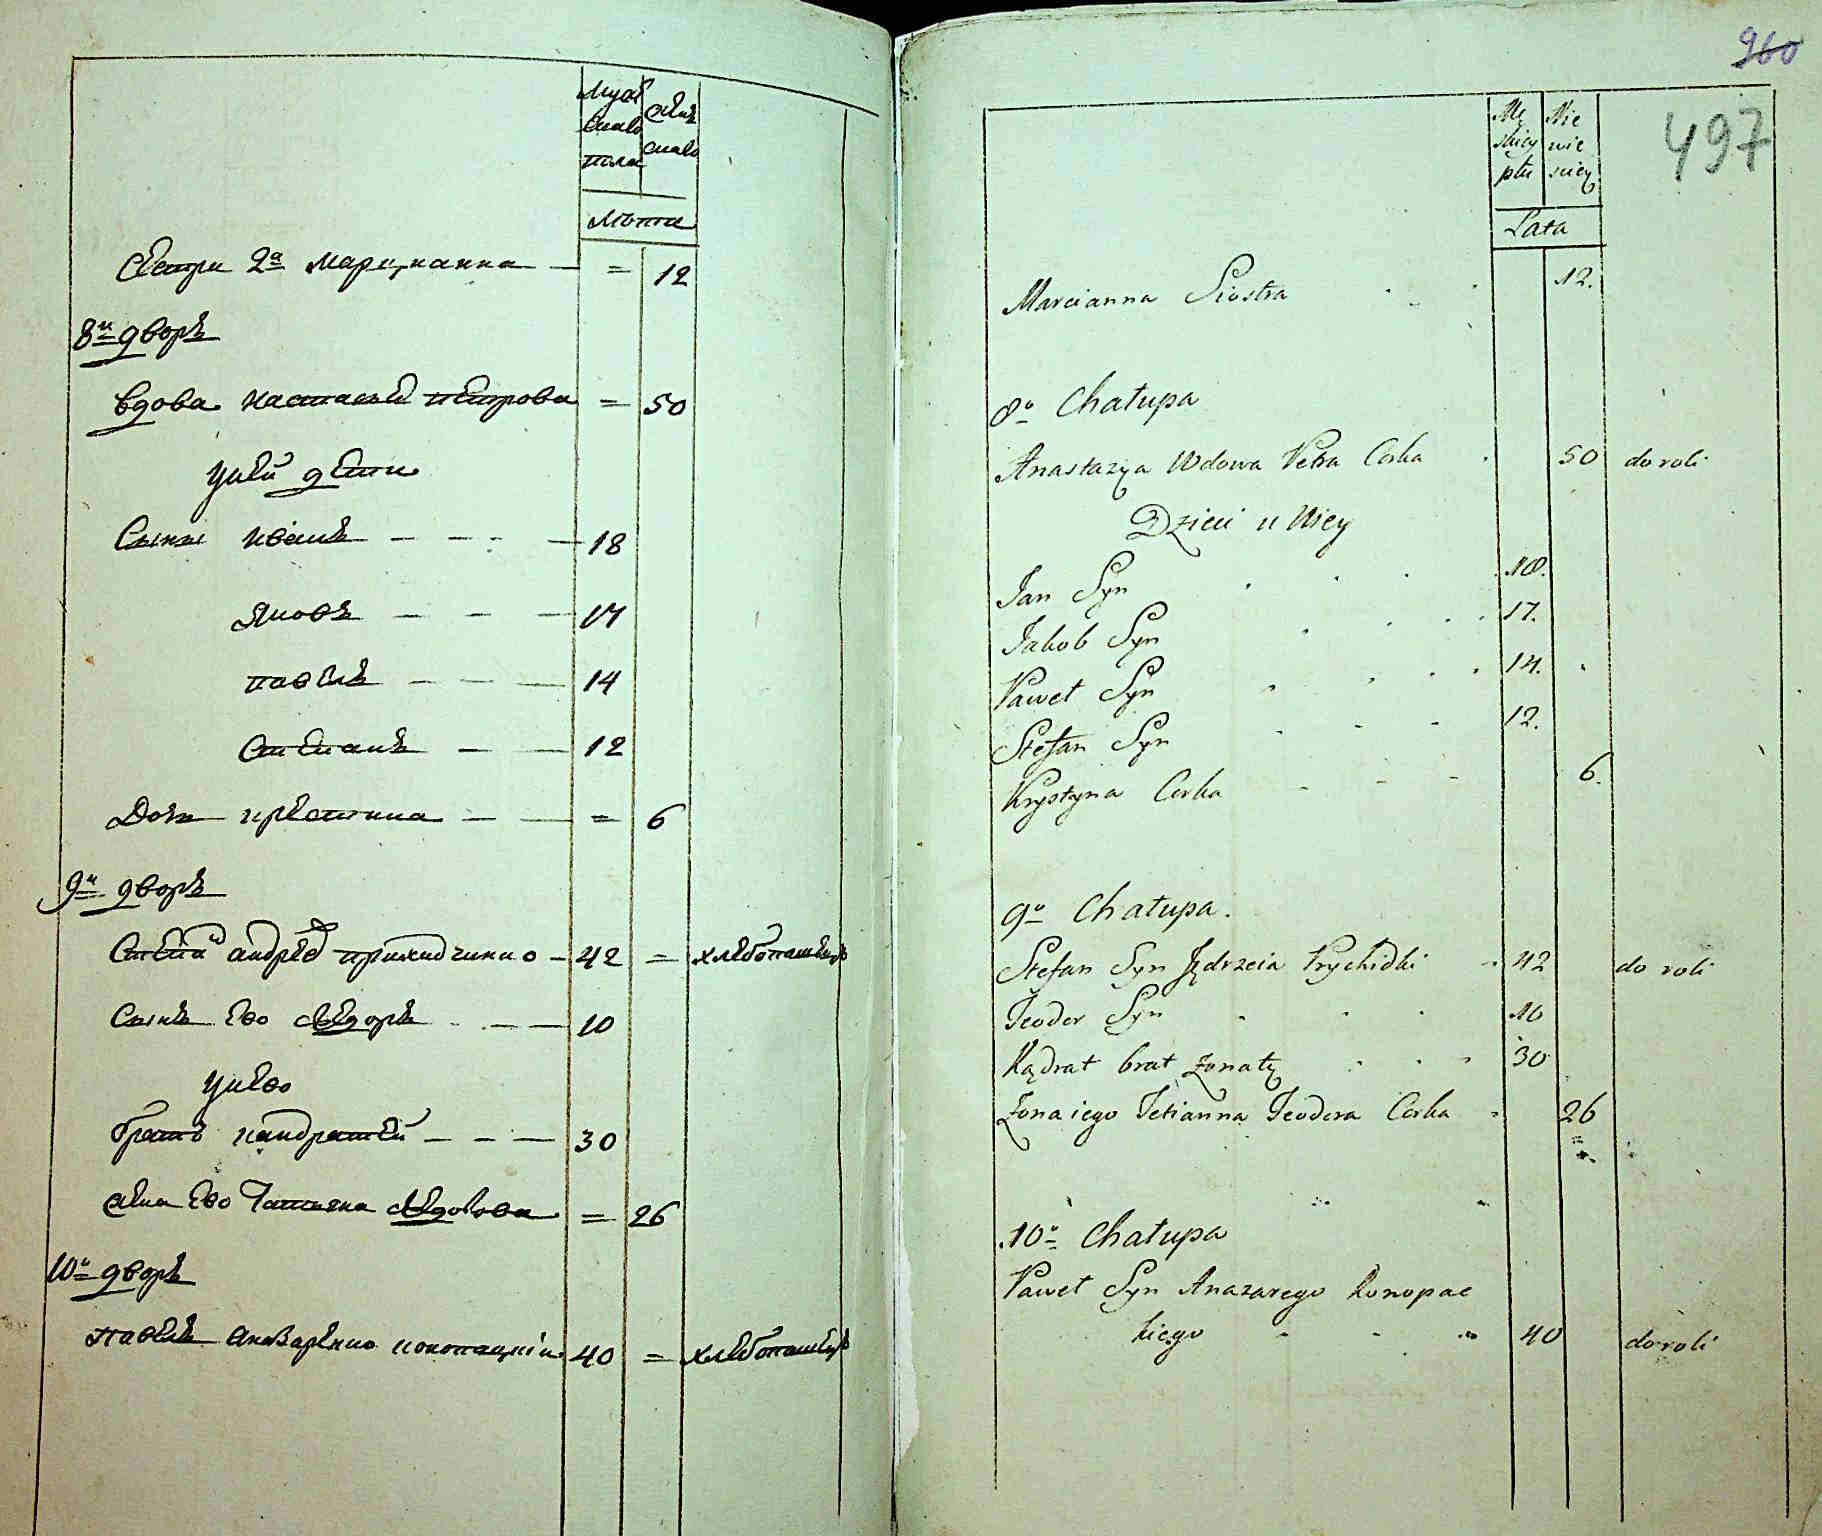 Мужеска пола
женска
Лѣта
Сестра 2я Марцианна — = 12
8й дворъ
Вдова Настасья Петрова = 50
У ней дети
Сыны Иванъ — 18
Яковъ — 17
Павелъ — 14
Степанъ — 12
Дочь Крестина — = 6
9й дворъ
Степан Андреев 42 = хлебопашецъ
Сынъ ево Федоръ — 10
У нево
братъ Кандратей — 30
жена ево Татьяна Федорова = 26
10й дворъ
Павелъ 40 = хлебопашецъ
960
497
Mę skiey płci
Nie wie sciey
Lata
Marcianna Siostra 12.
8o Chałupa
Anastazya Wdowa Petra Corka 50 do roli
Dzieci u Niey
Jan Syn 18.
Jakob Syn 17.
Paweł Syn 14.
Stefan Syn 12.
Krystyna Corka 6.
9o Chałupa.
Stefan Syn Jędrzeia Prychidki 42 do roli
Teodor Syn 10
Kądrat brat żonaty 30
Żona iego Tetianna Teodora Corka 26
10o Chałupa
Paweł Syn Anazarego Konopac
kiego 40 do roli